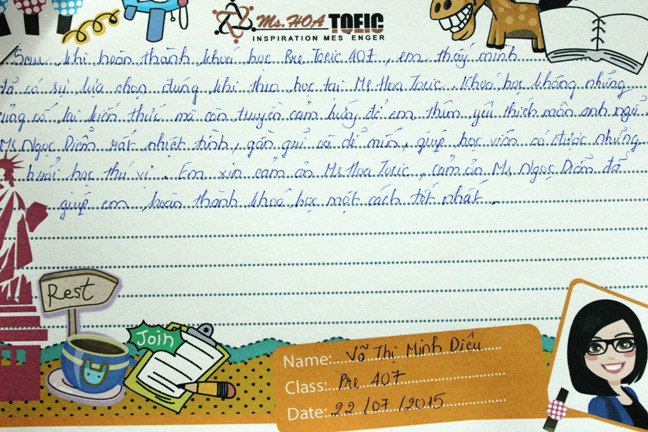 Ms.HOA TOEIC
INSPIRATION MESSENGER
Sau khi hoàn thành khoá học Pre Toeic A07, em thấy mình
đã có sự lựa chọn đúng khi theo học tại Ms Hoa Toeic. Khoá học không những
củng cố lại kiến thức mà còn truyền cảm hứng để em thêm yêu thích môn anh ngữ
Ms Ngọc Diễm rất nhiệt tình, gần gũi và dễ mến, giúp học viên có được những
buổi học thú vị. Em xin cảm ơn Ms Hoa Toeic, cảm ơn Ms Ngọc Diễm đã
giúp em hoàn thành khoá học một cách tốt nhất.
Rest
Join
Name: Võ Thị Minh Diệu
Class: Pre A07
Date: 22/07/2015